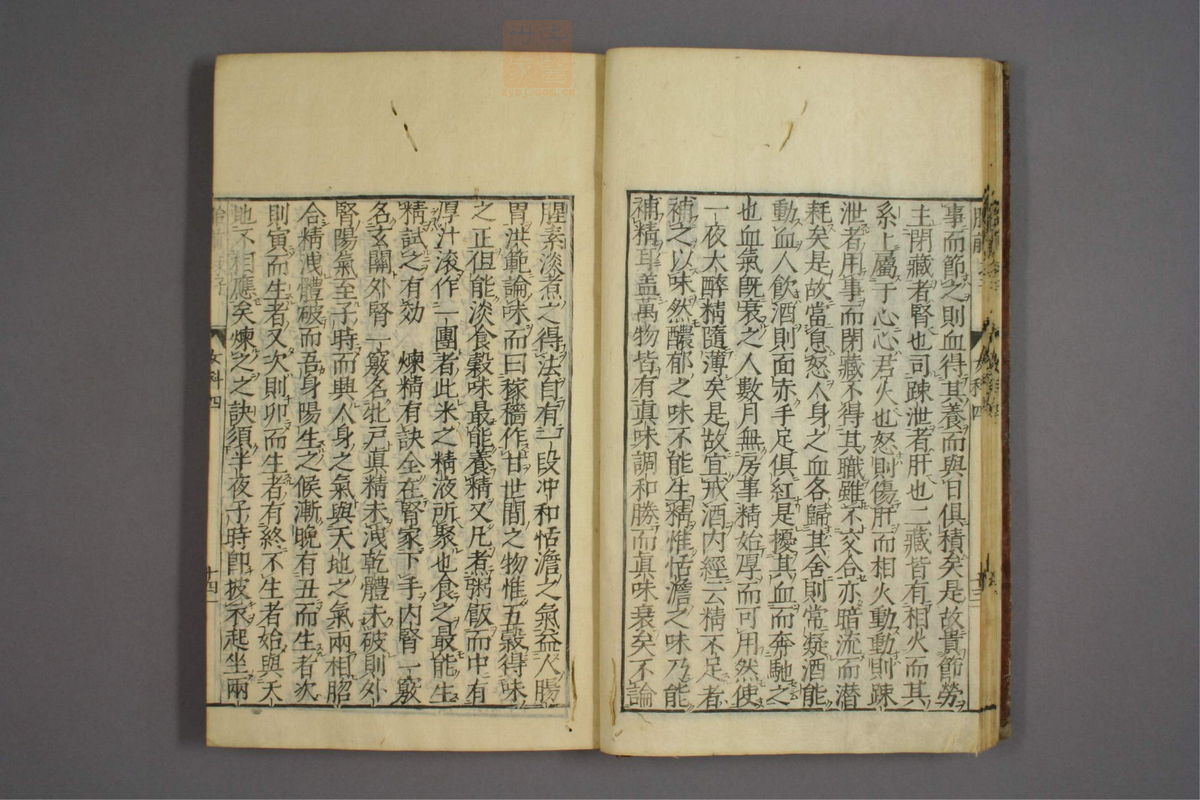 事而節之則血得其養而與日俱積矣是故貴節勞
主閉藏者腎也司疎泄者肝也二藏皆有相火而其
系上屬于心心君火也怒則傷肝而相火動動則疎
泄者用事而閉藏不得其職雖不交合亦暗流而潜
耗矣是故當息怒人身之血各歸其舍則常凝酒能
動血人飲酒則面赤手足俱紅是擾其血而奔馳之
也血氣既衰之人數月無房事精始厚而可用然使
一夜大醉精隨薄矣是故宜戒酒内經云精不足者
補之以味然醲郁之味不能生精惟恬澹之味乃能
補精耳盖萬物皆有眞味調和勝而眞味衰矣不論
腥素淡煮之得法自有一段冲和恬澹之氣益人腸
胃洪範論味而曰稼穡作甘世間之物惟五穀得味
之正但能淡食穀味最能養精又凡煮粥飯而中有
厚汁滚作一團者此米之精液所聚也食之最能生
精試之有効　煉精有訣全在腎家下手内腎一竅
名玄關外腎一竅名牝戸真精未洩乾體未破則外
腎陽氣至子時而興人身之氣與天地之氣兩相胎
合精洩體破而吾身陽生之候漸晩有丑而生者次
則寅而生者又次則卯而生者有終不生者始與天
地不相應矣煉之之訣須半夜子時即披衣起坐兩
女科四
十四